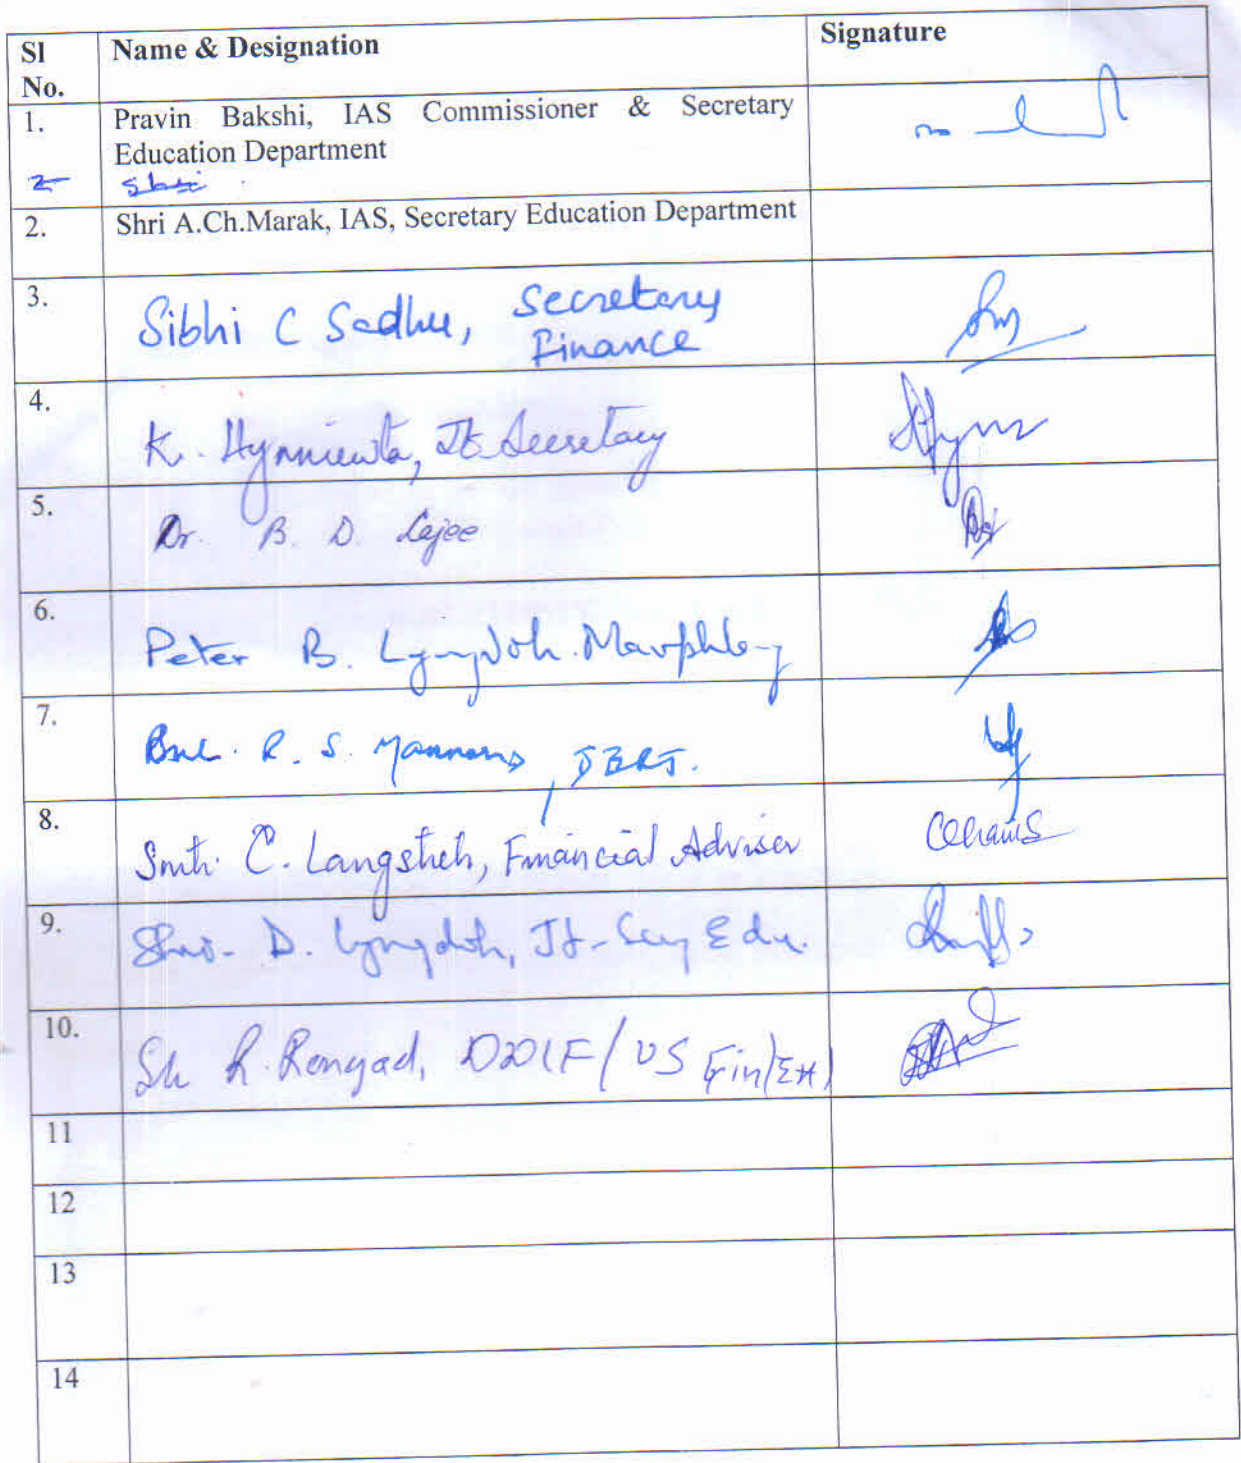 Sl No. Name & Designation Signature
1. Pravin Bakshi, IAS Commissioner & Secretary
Education Department
2
2. Shri A.Ch.Marak, IAS, Secretary Education Department
3. Sibhi C Sadhu, Secretary
Finance
4. K. Hynniewta, Jt Secretary
5. Dr. B. D. Lajee
6. Peter B. Lyngdoh Mawphlang
7. R. S.
8. Smti. C. Langstieh, Financial Adviser
9. Shri. D. Lyngdoh, Jt-Secy Edu.
10. Sh R. Rongad, US Fin
11
12
13
14